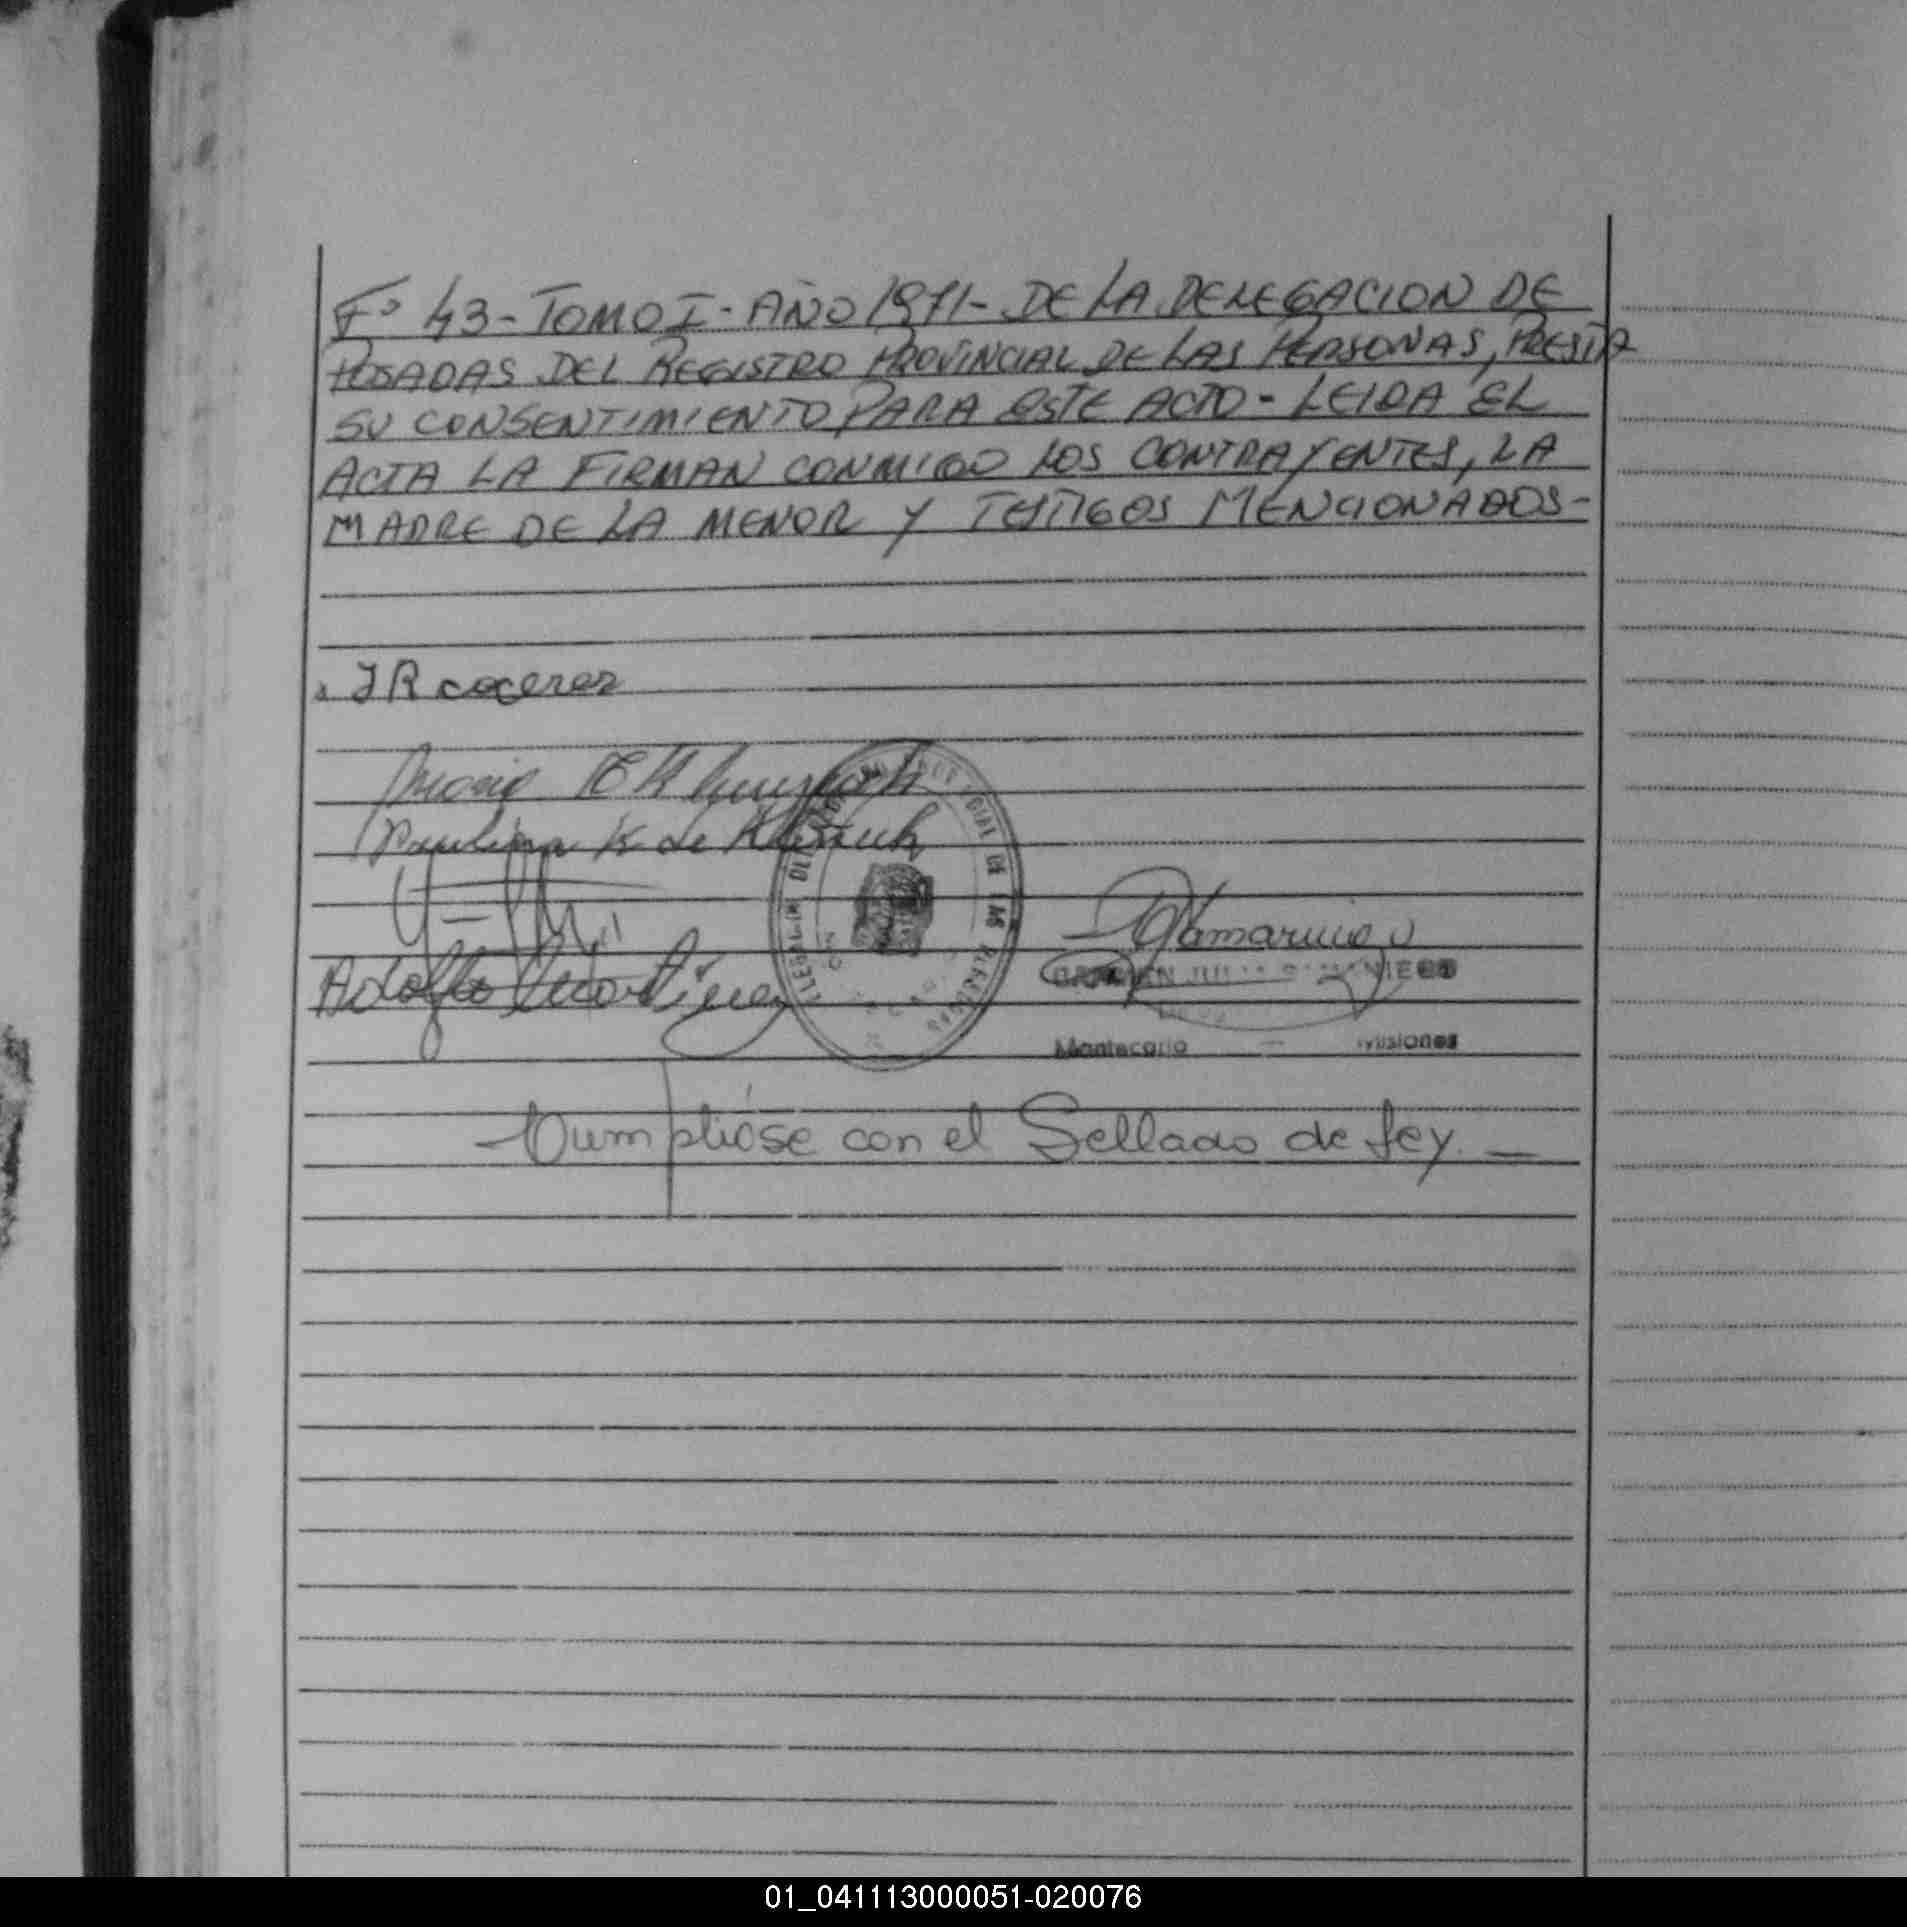 Fº 43 - TOMO I - AÑO 1971 - DE LA DELEGACION DE
POSADAS DEL REGISTRO PROVINCIAL DE LAS PERSONAS, PRESTA
SU CONSENTIMIENTO PARA ESTE ACTO - LEIDA EL
ACTA LA FIRMAN CONMIGO LOS CONTRAYENTES, LA
MADRE DE LA MENOR Y TESTIGOS MENCIONADOS -
J R caceres
Maria
Paulina K de
Adolfo Martinez
DE LAS PERSONAS
CARMEN
Montecarlo — Misiones
- Cumplióse con el Sellado de Ley. -
01_041113000051-020076